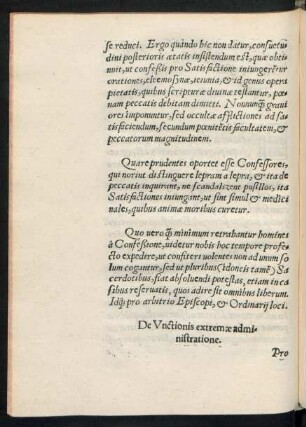 se reduci. Ergo quando hic non datur, consuetu
dini posterioris ætatis insistendum est, quæ obti
nuit, ut confeßis pro Satisfactione iniungerẽtur
orationes, eleemosynæ, ieiunia, & id genus opera
pietatis, quibus scripturæ diuinæ testantur, pœ-
nam peccatis debitam dimitti. Nonnunq̃ graui
ores imponuntur, sed occultæ afflictiones ad sa-
tisfaciendum, secundum pœnitẽtis facultatem, &
peccatorum magnitudinem.
Quare prudentes oportet esse Confessores,
qui norint distinguere lepram a lepra, & ita de
peccatis inquirant, ne scandalizent pusillos, ita
Satisfactiones iniungant, ut sint simul & medici
nales, quibus animæ moribus curetur.
Quo uero q̃ minimum retrahantur homines
à Confeßione, uidetur nobis hoc tempore profe
cto expedire, ut confiteri uolentes non ad unum so
lum cogantur, sed ut pluribus (idoneis tamẽ) Sa
cerdotibus, fiat absoluendi potestas, etiam in ca
sibus reseruatis, quos adire sit omnibus liberum.
Idq́; pro arbitrio Episcopi, & Ordinarij loci.
De Vnctionis extremæ admi-
nistratione.
Pro